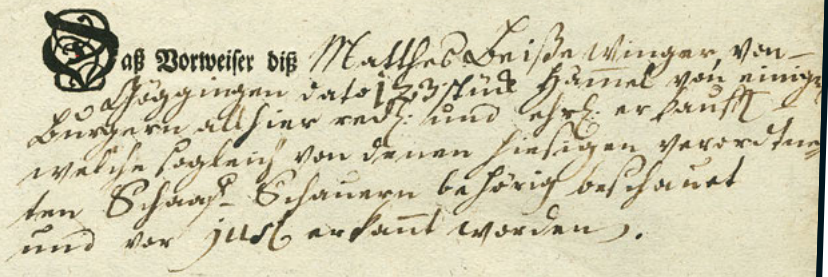 Daß Vorweiser diß Matthes Beißewinger, von
Göggingen dato 123 stück Hämel von einigen
Burgern allhier red: und ehrl: erkaufft
welche sogleich von denen hiesigen verordtne-
ten Schaaf-Schauern behörig beschauet
und vor just erkannt worden.